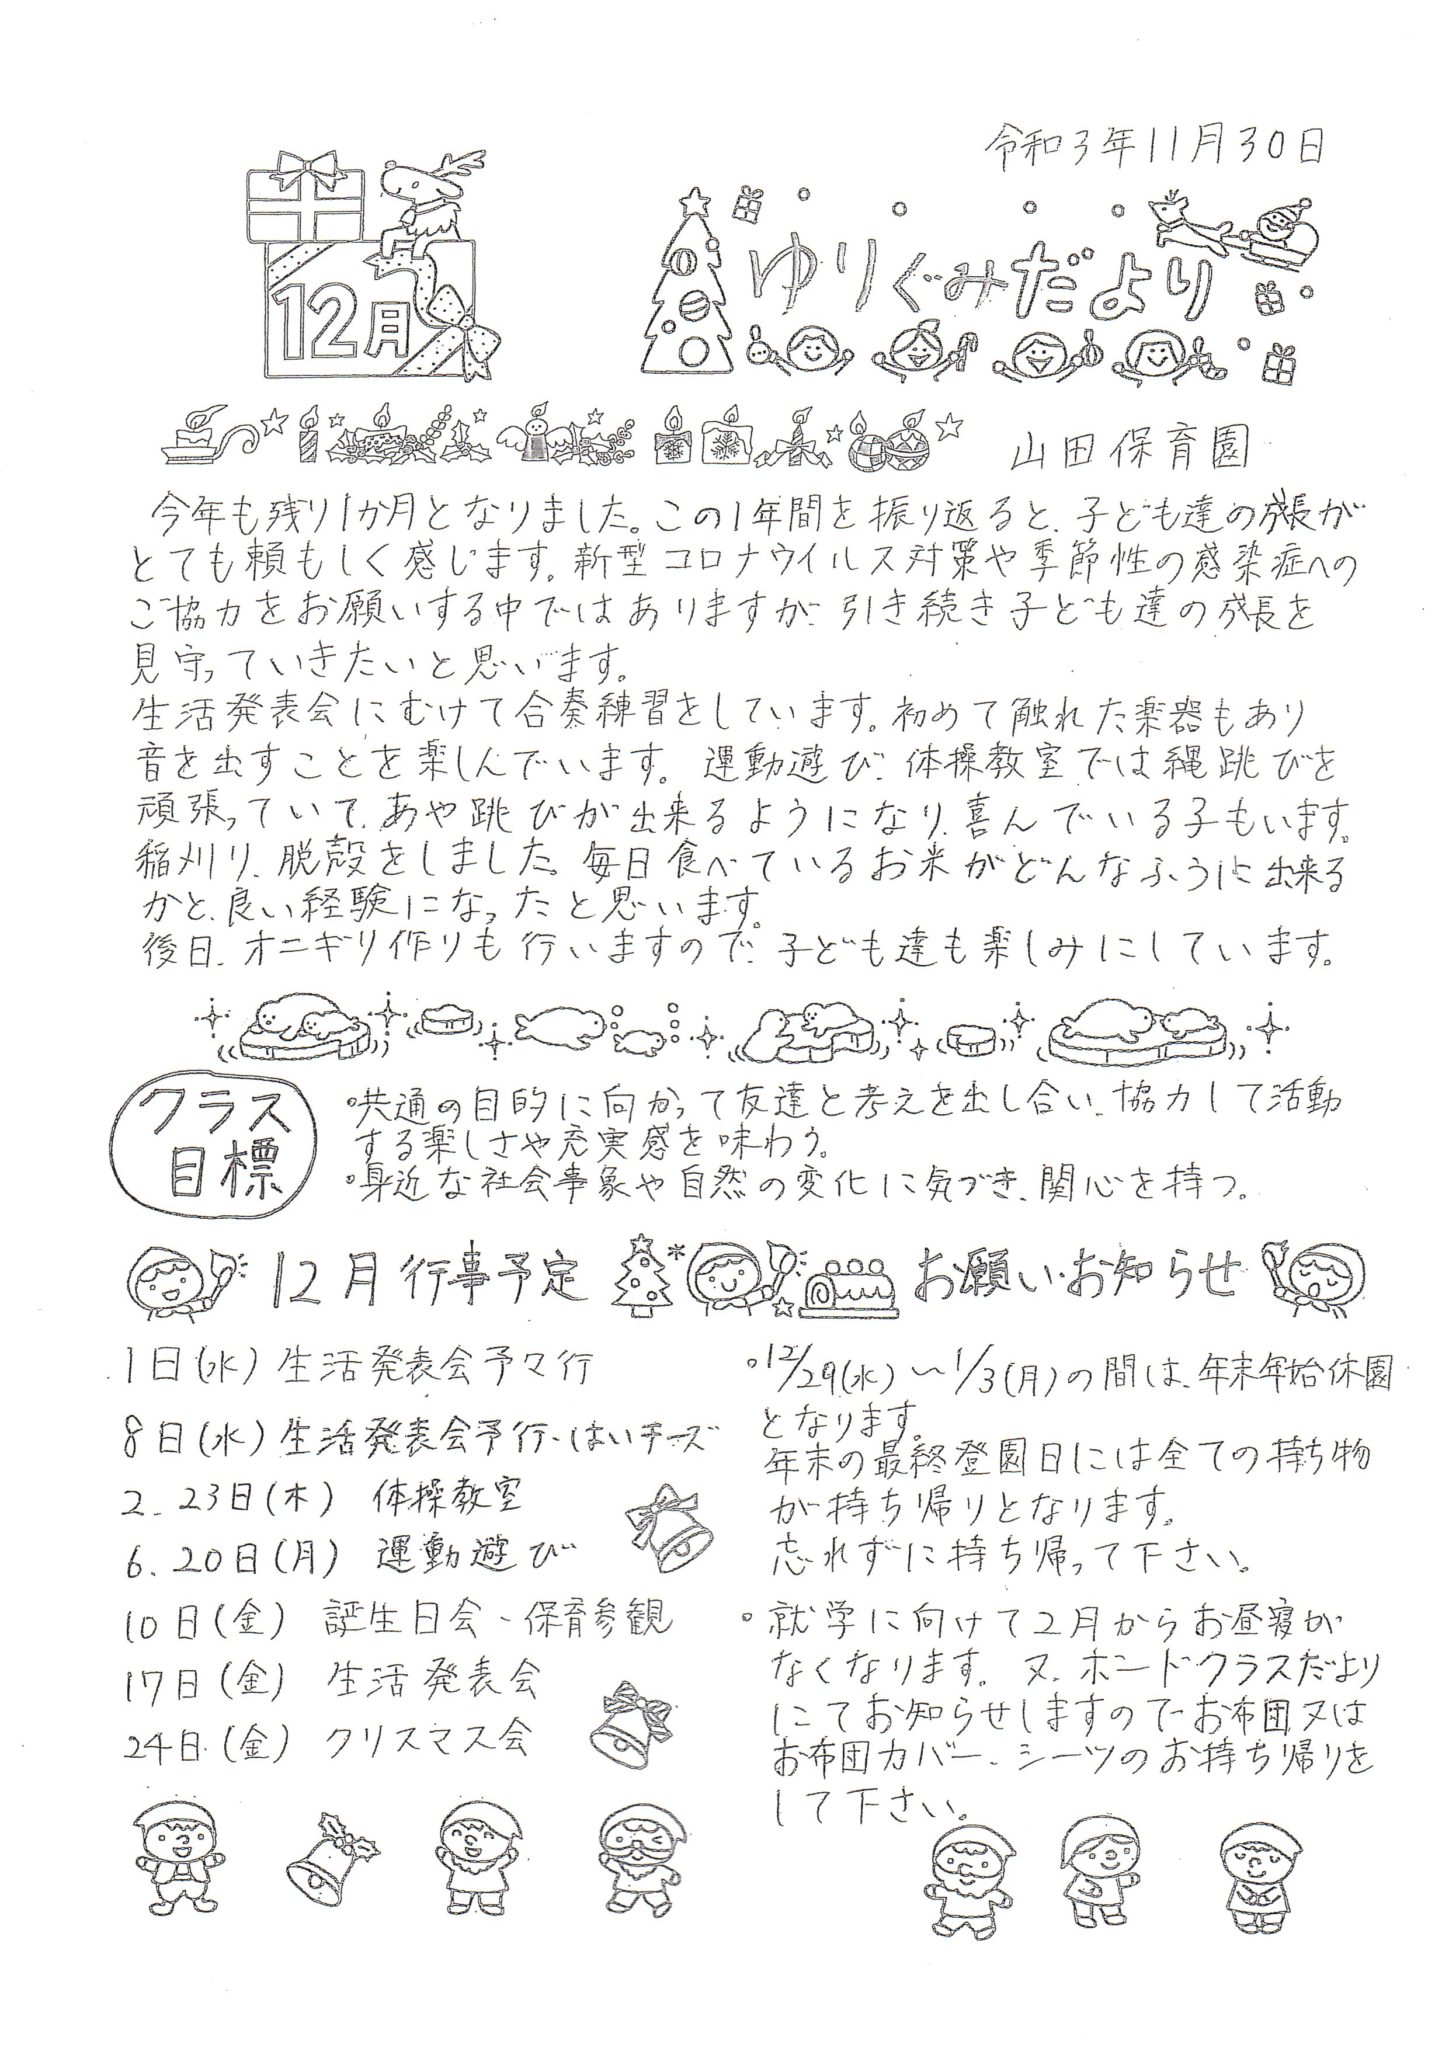 令和3年11月30日
12月
ゆりぐみだより
山田保育園
今年も残り1か月となりました。この1年間を振り返ると、子ども達の成長が
とても頼もしく感じます。新型コロナウイルス対策や季節性の感染症への
ご協力をお願いする中ではありますが、引き続き子ども達の成長を
見守っていきたいと思います。
生活発表会にむけて合奏練習をしています。初めて触れた楽器もあり
音を出すことを楽しんでいます。運動遊び、体操教室では縄跳びを
頑張っていて、あや跳びが出来るようになり、喜んでいる子もいます。
稲刈り、脱殻をしました。毎日食べているお米がどんなふうに出来る
かと、良い経験になったと思います。
後日、オニギリ作りも行いますので、子ども達も楽しみにしています。
クラス
目標
・共通の目的に向かって友達と考えを出し合い、協力して活動
する楽しさや充実感を味わう。
・身近な社会事象や自然の変化に気づき、関心を持つ。
12月行事予定
1日(水) 生活発表会予々行
8日(水) 生活発表会予行、はいチーズ
2、23日(木) 体操教室
6、20日(月) 運動遊び
10日(金) 誕生日会、保育参観
17日(金) 生活発表会
24日(金) クリスマス会
お願い・お知らせ
・12/29(水)〜1/3(月)の間は、年末年始休園
となります。
年末の最終登園日には全ての持ち物
が持ち帰りとなります。
忘れずに持ち帰って下さい。
・就学に向けて2月からお昼寝が
なくなります。又、ホンドクラスだより
にてお知らせしますので、お布団又は
お布団カバー、シーツのお持ち帰りを
して下さい。